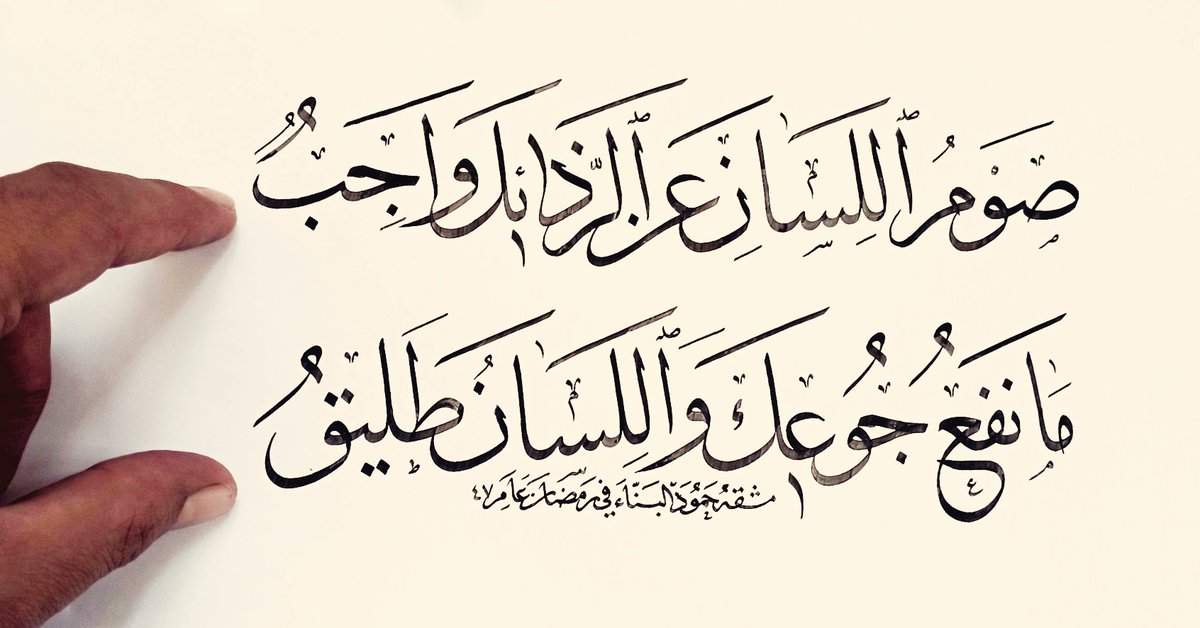 صَوْمُ ٱللِّسَانِ عَنِ ٱلرَّذَائِلِ وَاجِبٌ
مَا نَفْعُ جُوعِكَ وَٱللِّسَانُ طَلِيقُ
مشقه حَمُود البَنَّاء في رَمَضَان عَام ٤٧